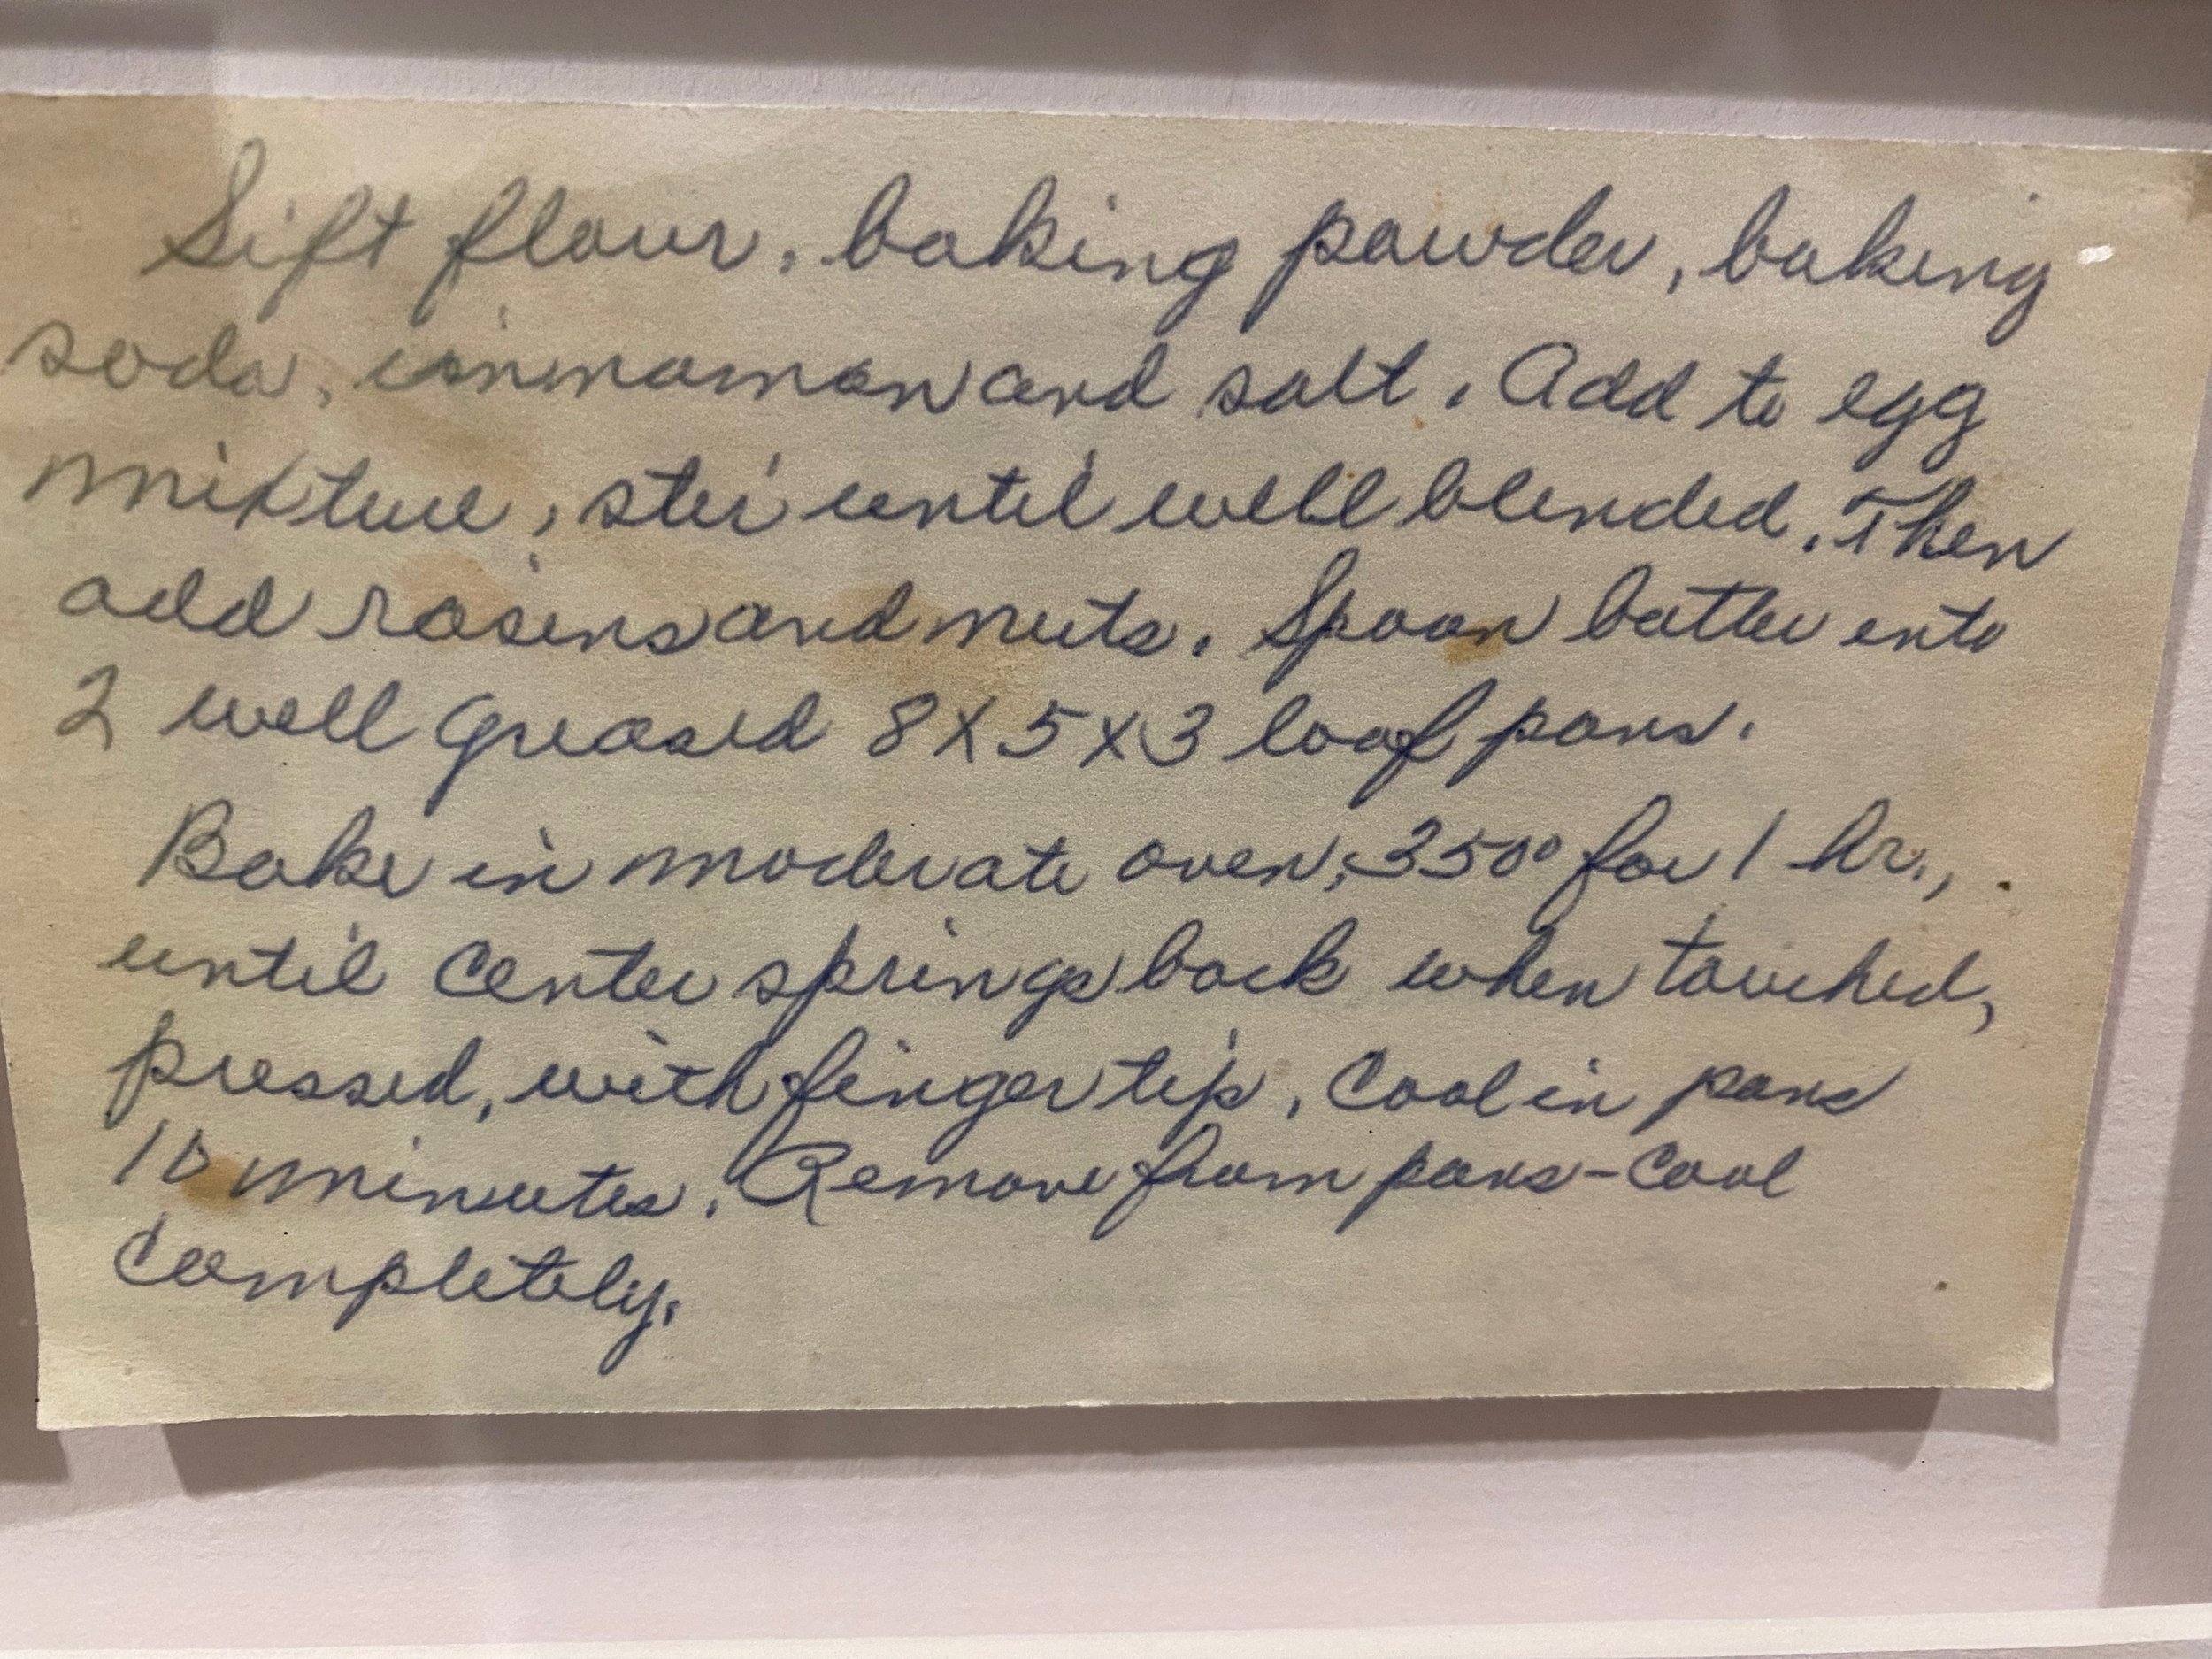 Sift flour, baking powder, baking
soda, cinnamon and salt. Add to egg
mixture, stir until well blended. Then
add rasins and nuts. Spoon batter into
2 well greased 8 X 5 X 3 loaf pans.
Bake in moderate oven, 350° for 1 hr.,
until center springs back when touched,
pressed, with finger tip. Cool in pans
10 minutes. Remove from pans - Cool
Completely.